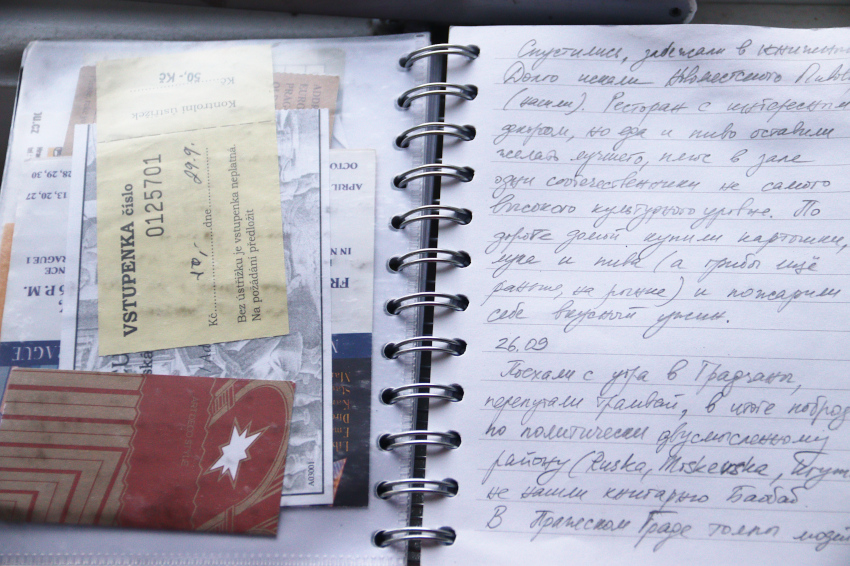 Kč 50.-Kč
Kontrolní ústřižek
VSTUPENKA číslo
0125701
Kč 70,- dne 29.9.
Bez ústřižku je vstupenka neplatná.
Na požádání předložit
OCTO
28, 29, 30
13, 20, 27
APRIL
IN N
FR
PRAGUE 1
NCE
5 P.M.
AGUE
A03001
Спустились, забежали в книжный
Долго искали Новоместского Пиво
(нашли). Ресторан с интересным
декором, но еда и пиво оставили
желать лучшего, плюс в зале
одни соотечественники не самого
высокого культурного уровня. По
дороге домой купили картошки,
лука и пива (а грибы ещё
раньше, на рынке) и пожарили
себе вкусный ужин.
26.09
Поехали с утра в Градчаны,
перепутали трамвай, в итоге поброд
по политически двусмысленному
району (Ruska, Moskevska,
не нашли книгарню Баобаб
В Пражском Граде толпы людей